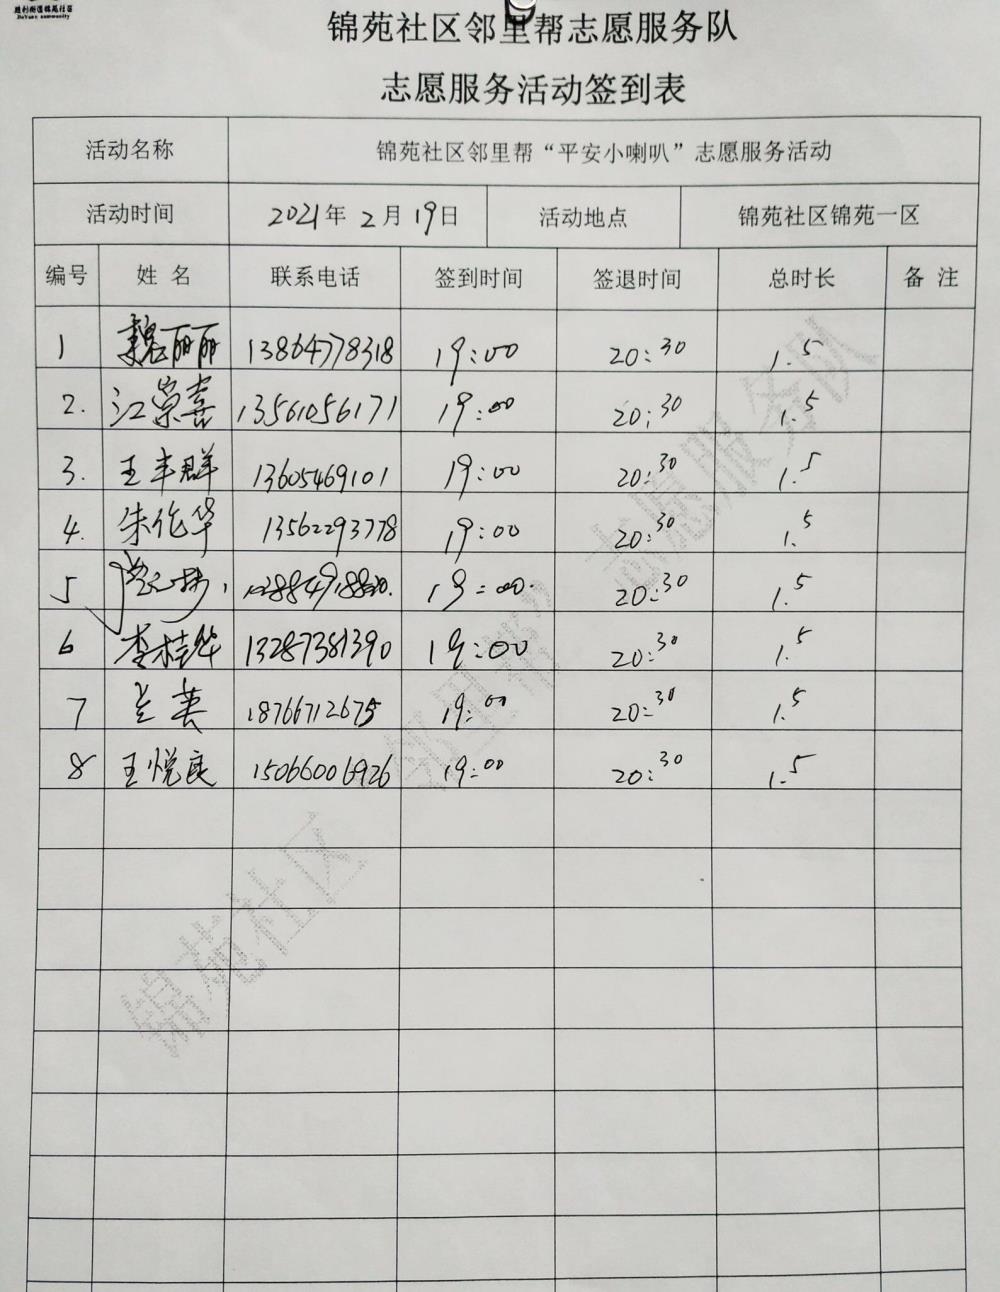 胜利街道锦苑社区
锦苑社区邻里帮志愿服务队
志愿服务活动签到表
活动名称 锦苑社区邻里帮“平安小喇叭”志愿服务活动
活动时间 2021年2月19日 活动地点 锦苑社区锦苑一区
编号 姓名 联系电话 签到时间 签退时间 总时长 备注
1 魏丽丽 13864778318 19:00 20:30 1.5
2. 江崇喜 13561056171 19:00 20:30 1.5
3. 王丰群 13605469101 19:00 20:30 1.5
4. 朱作华 13562293778 19:00 20:30 1.5
5 19:00 20:30 1.5
6 李桂华 13287381390 19:00 20:30 1.5
7 兰英 18766712675 19:00 20:30 1.5
8 王悦良 15066006926 19:00 20:30 1.5
锦苑社区“邻里帮”志愿服务队